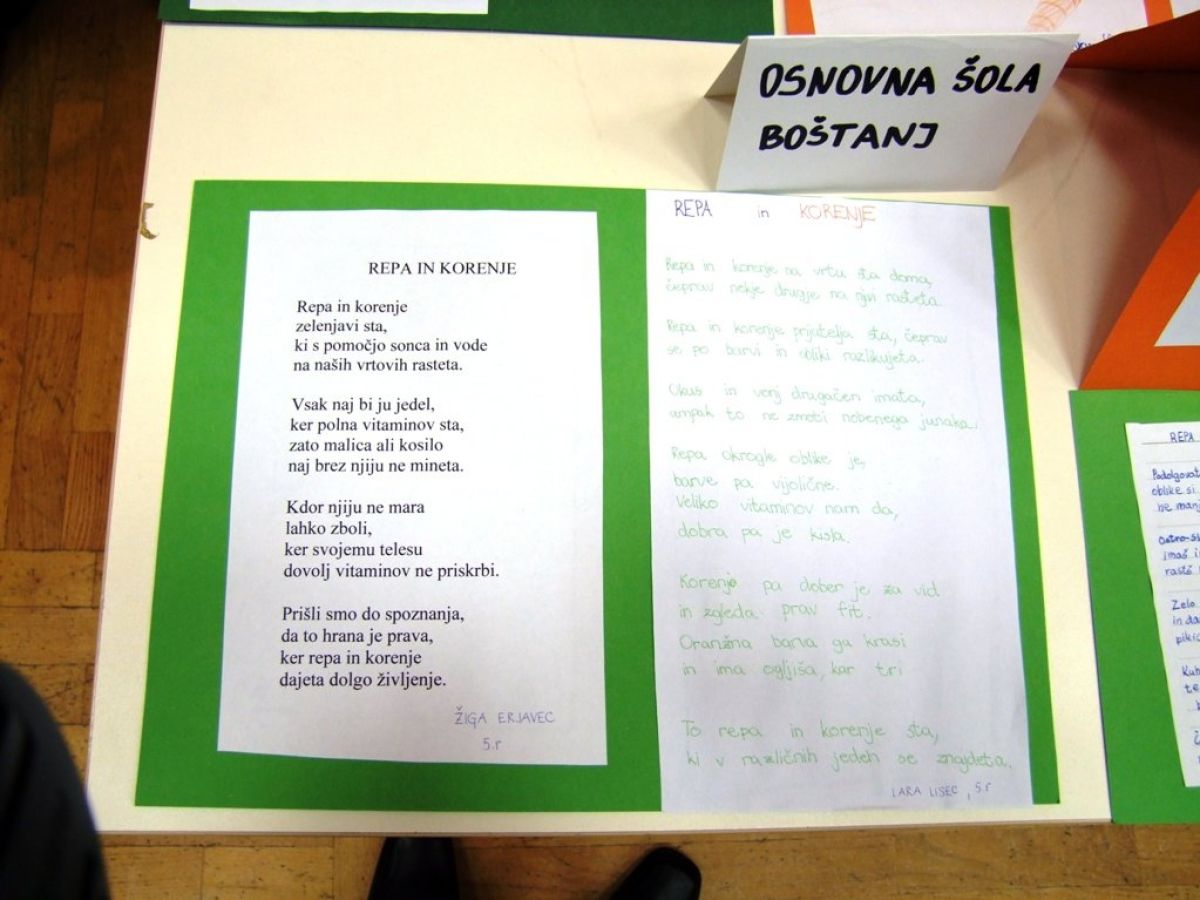 OSNOVNA ŠOLA
BOŠTANJ
REPA IN KORENJE
Repa in korenje
zelenjavi sta,
ki s pomočjo sonca in vode
na naših vrtovih rasteta.
Vsak naj bi ju jedel,
ker polna vitaminov sta,
zato malica ali kosilo
naj brez njiju ne mineta.
Kdor njiju ne mara
lahko zboli,
ker svojemu telesu
dovolj vitaminov ne priskrbi.
Prišli smo do spoznanja,
da to hrana je prava,
ker repa in korenje
dajeta dolgo življenje.
ŽIGA ERJAVEC
5.r
REPA in KORENJE
Repa in korenje na vrtu sta doma,
čeprav nekje drugje na njivi rasteta.
Repa in korenje prijatelja sta, čeprav
se po barvi in obliki razlikujeta.
Okus in vonj drugačen imata,
ampak to ne zmoti nobenega junaka.
Repa okrogle oblike je,
barve pa vijolične.
Veliko vitaminov nam da,
dobra pa je kisla.
Korenje pa dober je za vid
in zgleda prav fit.
Oranžna barva ga krasi
in ima ogljiša, kar tri
To repa in korenje sta,
ki v različnih jedeh se znajdeta.
LARA LISEC, 5.r
REPA
Podolgovat
oblike si
ne manj
imaš
raste
Zelo
in da